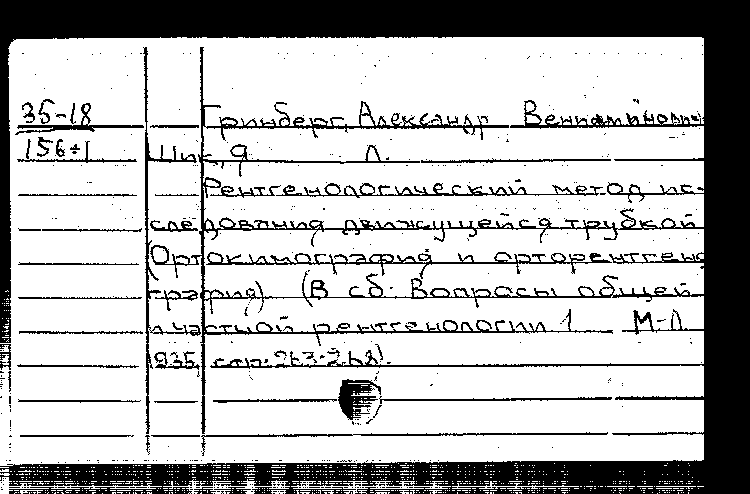 35-18
156÷1
Гринберг, Александр Вениаминович
Шик, Я Л.
Рентгенологический метод ис-
следования движущейся трубкой
(Ортокимография и орторентгено
графия). (В сб: Вопросы общей
и частной рентгенологии 1 М-Л
1935, стр. 263-268).